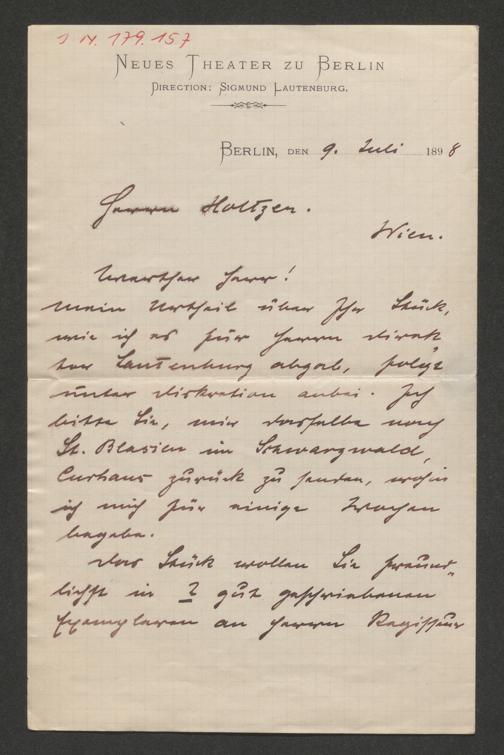 I N. 179.157
NEUES THEATER ZU BERLIN
DIRECTION: SIGMUND LAUTENBURG.
BERLIN, DEN 9. Juli 1898
Herrn Holtzer.
Wien.
Werther Herr!
Mein Urtheil über Ihr Stück,
wie ich es für Herrn Direk
tor Lautenburg abgab, folgt
unter Diskretion anbei. Ich
bitte Sie, mir dasselbe nach
St. Blasien im Schwarzwald,
Curhaus zurück zu senden, wohin
ich mich für einige Wochen
begebe.
Das Stück wollen Sie freund-
lichst in 2 gut geschriebenen
Exemplaren an Herrn Regisseur